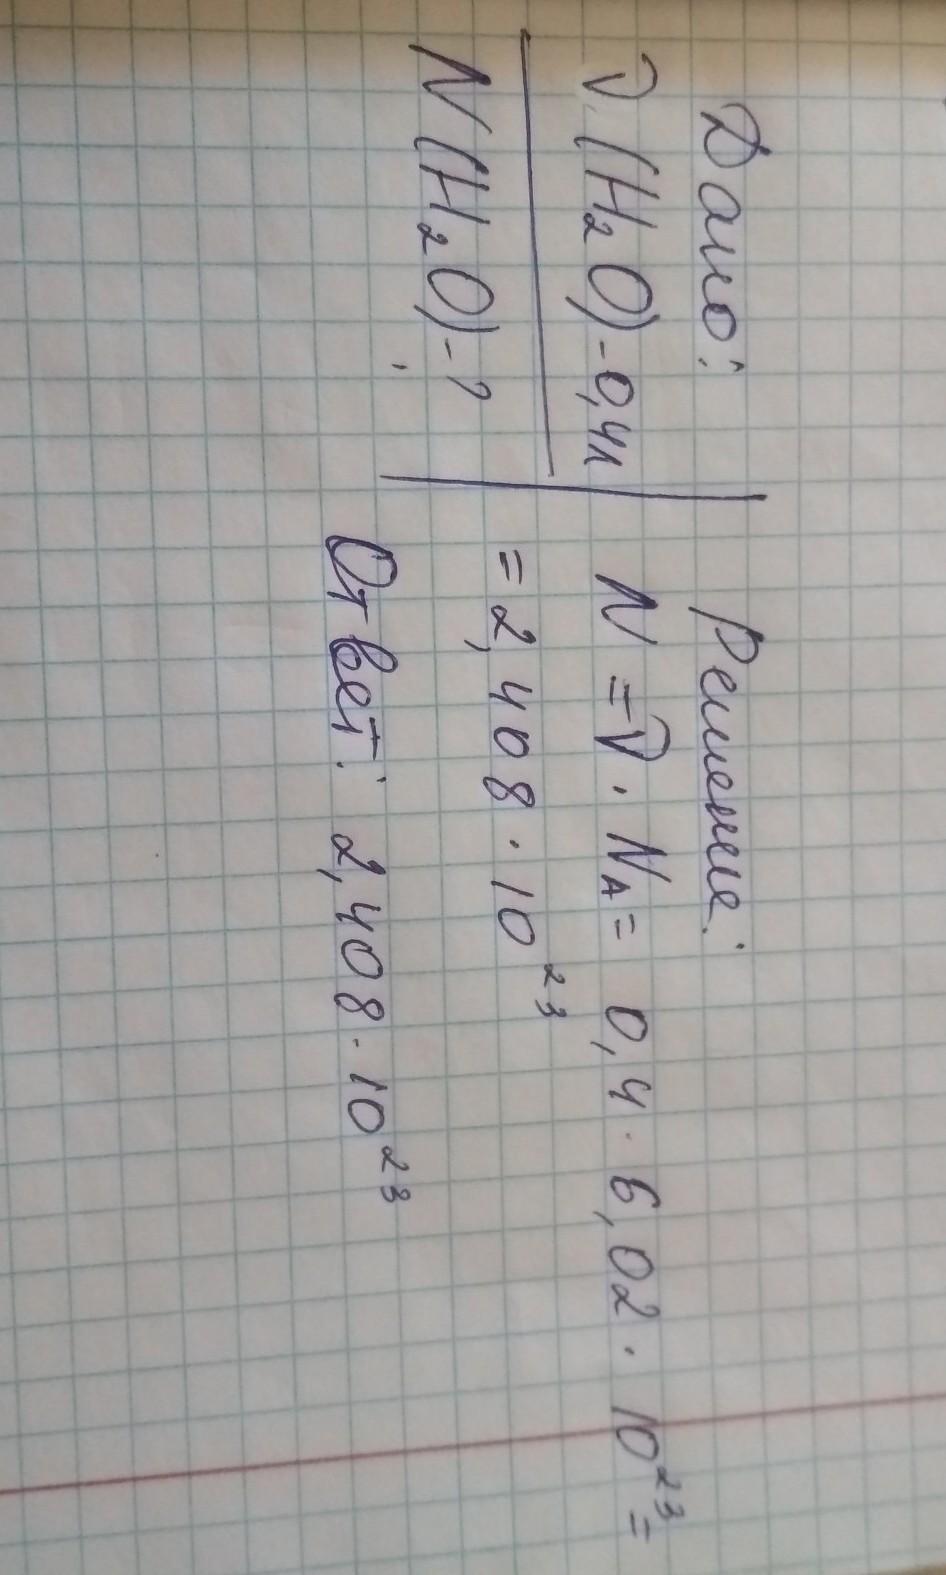 Дано:
ν (H₂O) - 0,4л
N (H₂O) - ?
Решение:
N = ν · Nᴀ = 0,4 · 6,02 · 10²³ =
= 2,408 · 10²³
Ответ: 2,408 · 10²³